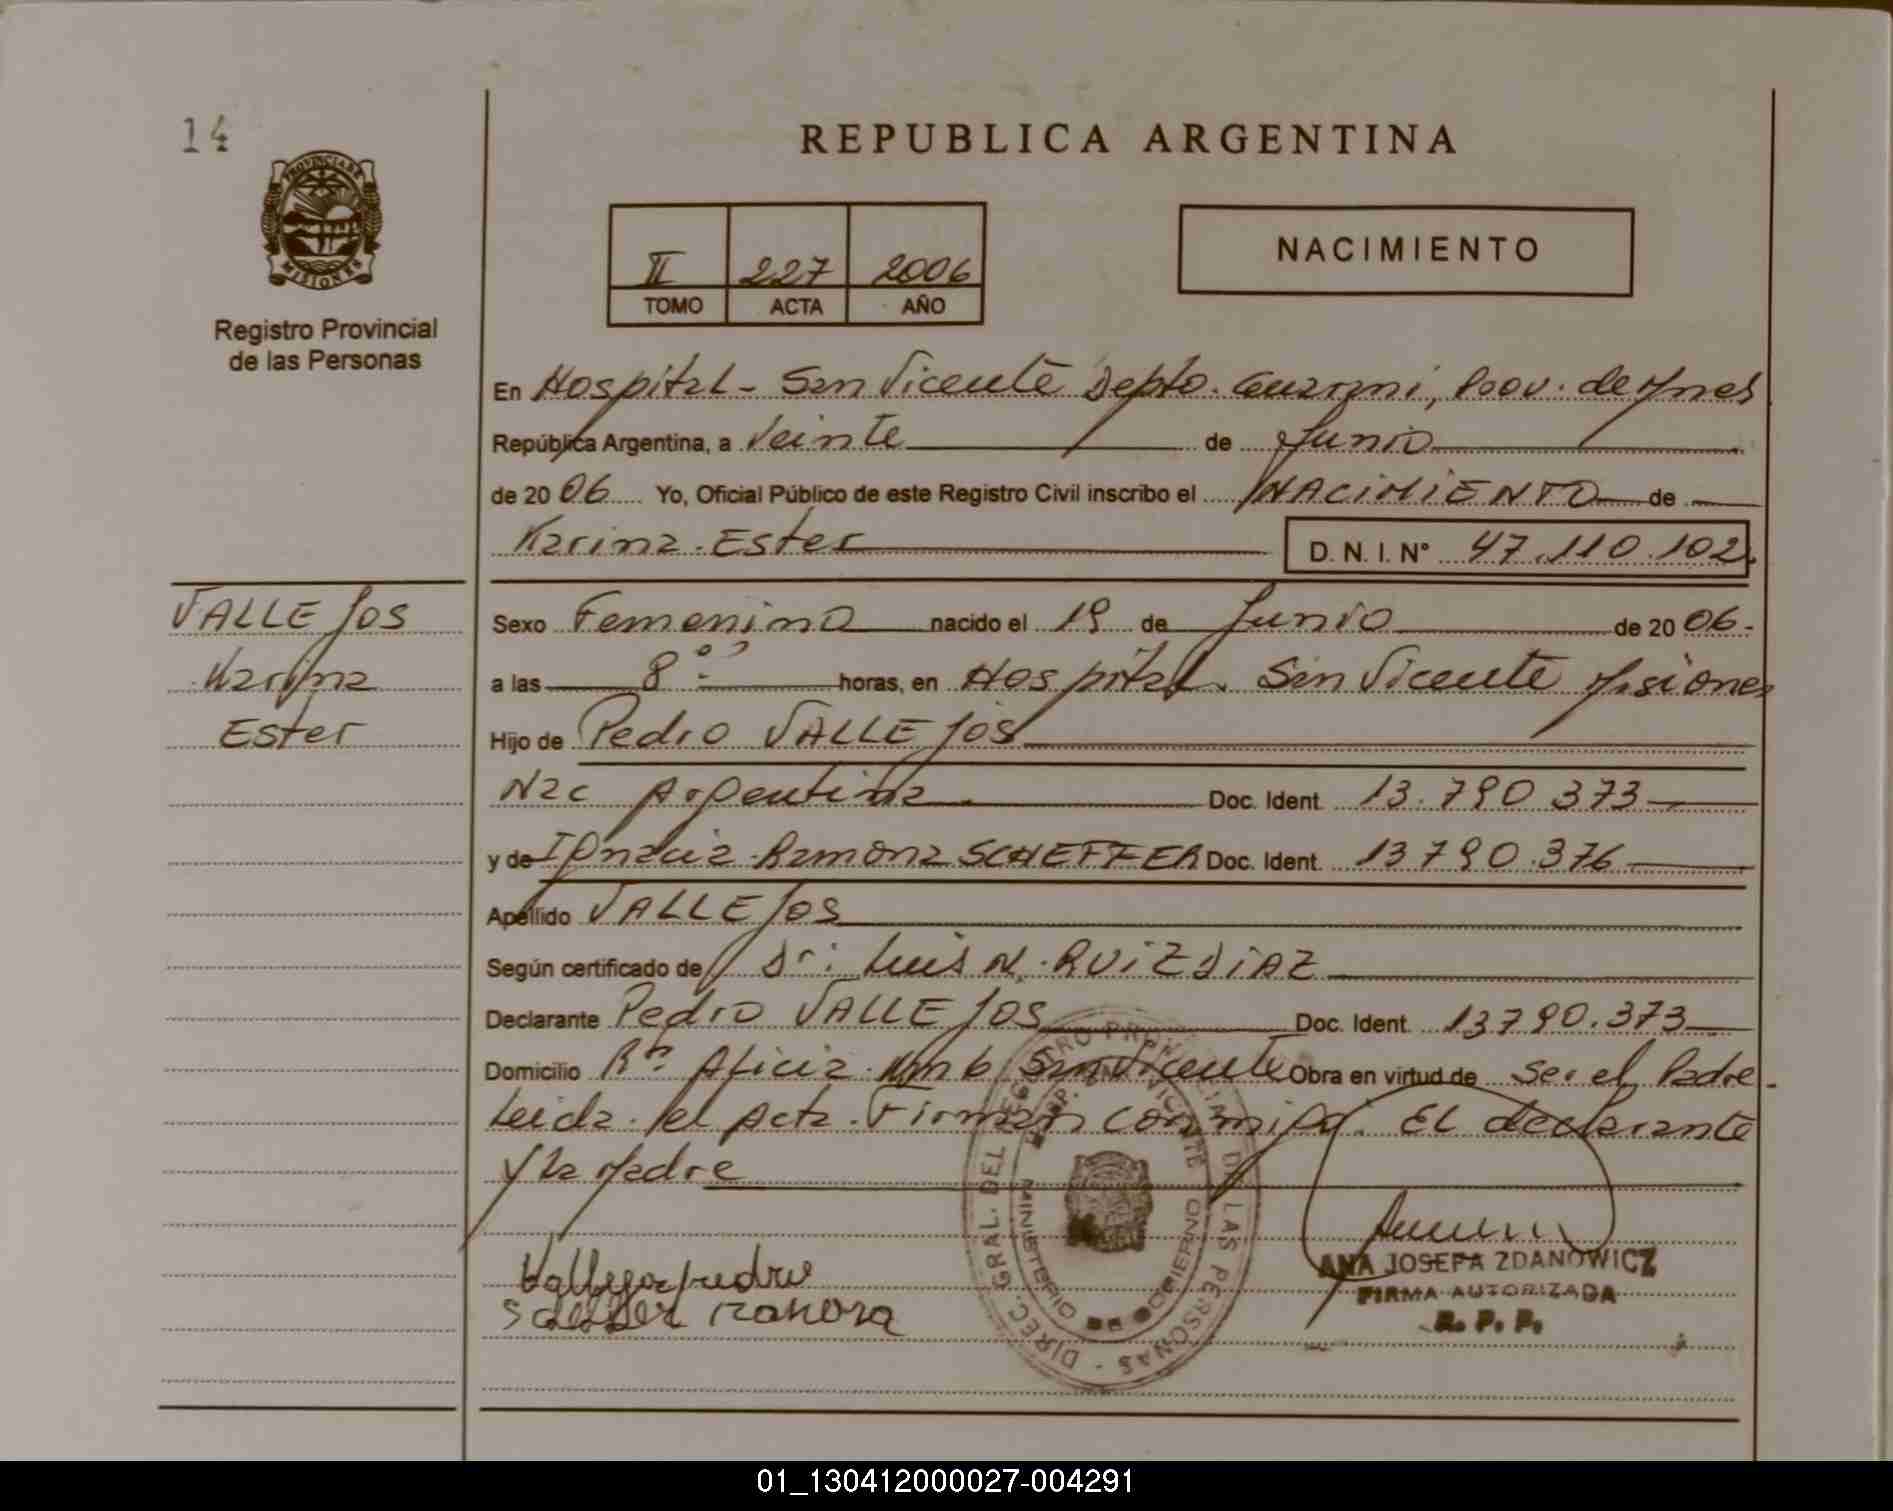 14
REPUBLICA ARGENTINA
PROVINCIA DE
MISIONES
Registro Provincial
de las Personas
II 227 2006
TOMO ACTA AÑO
NACIMIENTO
En Hospital - San Vicente Depto. Guarani, Prov. de Mnes
República Argentina, a Veinte de Junio
de 2006 Yo, Oficial Público de este Registro Civil inscribo el NACIMIENTO de
Karina Ester D. N. I. N° 47.110.102
VALLEJOS
Karina
Ester
Sexo Femenino nacido el 19 de Junio de 2006.
a las 8 horas, en Hospital San Vicente Misiones
Hijo de Pedro VALLEJOS
Nac Argentina Doc. Ident. 13.790 373
y de Ignacia Ramona SCHEFFER Doc. Ident. 13790.376
Apellido VALLEJOS
Según certificado de Dr: Luis N. RUIZ DIAZ
Declarante Pedro VALLEJOS Doc. Ident. 13790.373
Domicilio San Vicente Obra en virtud de Ser el Padre.
Leida el Acta Firman conmigo El declarante
y La Madre
Vallejos pedro
ramona
DIREC. GRAL. DEL REGISTRO PROVINCIAL DE LAS PERSONAS
HOSP. SAN VICENTE
MINISTERIO DE GOBIERNO
ANA JOSEFA ZDANOWICZ
FIRMA AUTORIZADA
R. P. P.
01_130412000027-004291